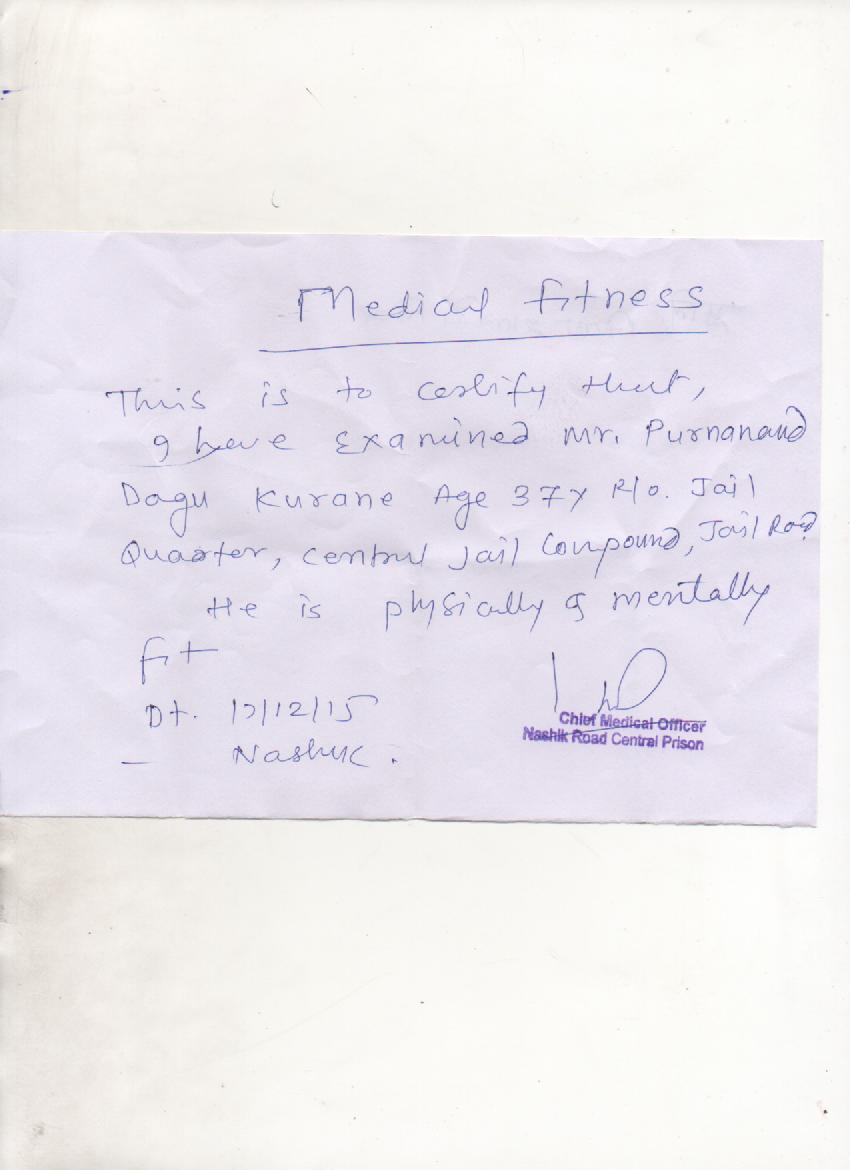 Medical fitness
This is to certify that,
I have Examined Mr. Purnanand
Dagu Kurane Age 37y R/o. Jail
Quarter, central Jail Compound, Jail Road
He is physically & mentally
fit
Dt. 17/12/15
Nashik.
Chief Medical Officer
Nashik Road Central Prison